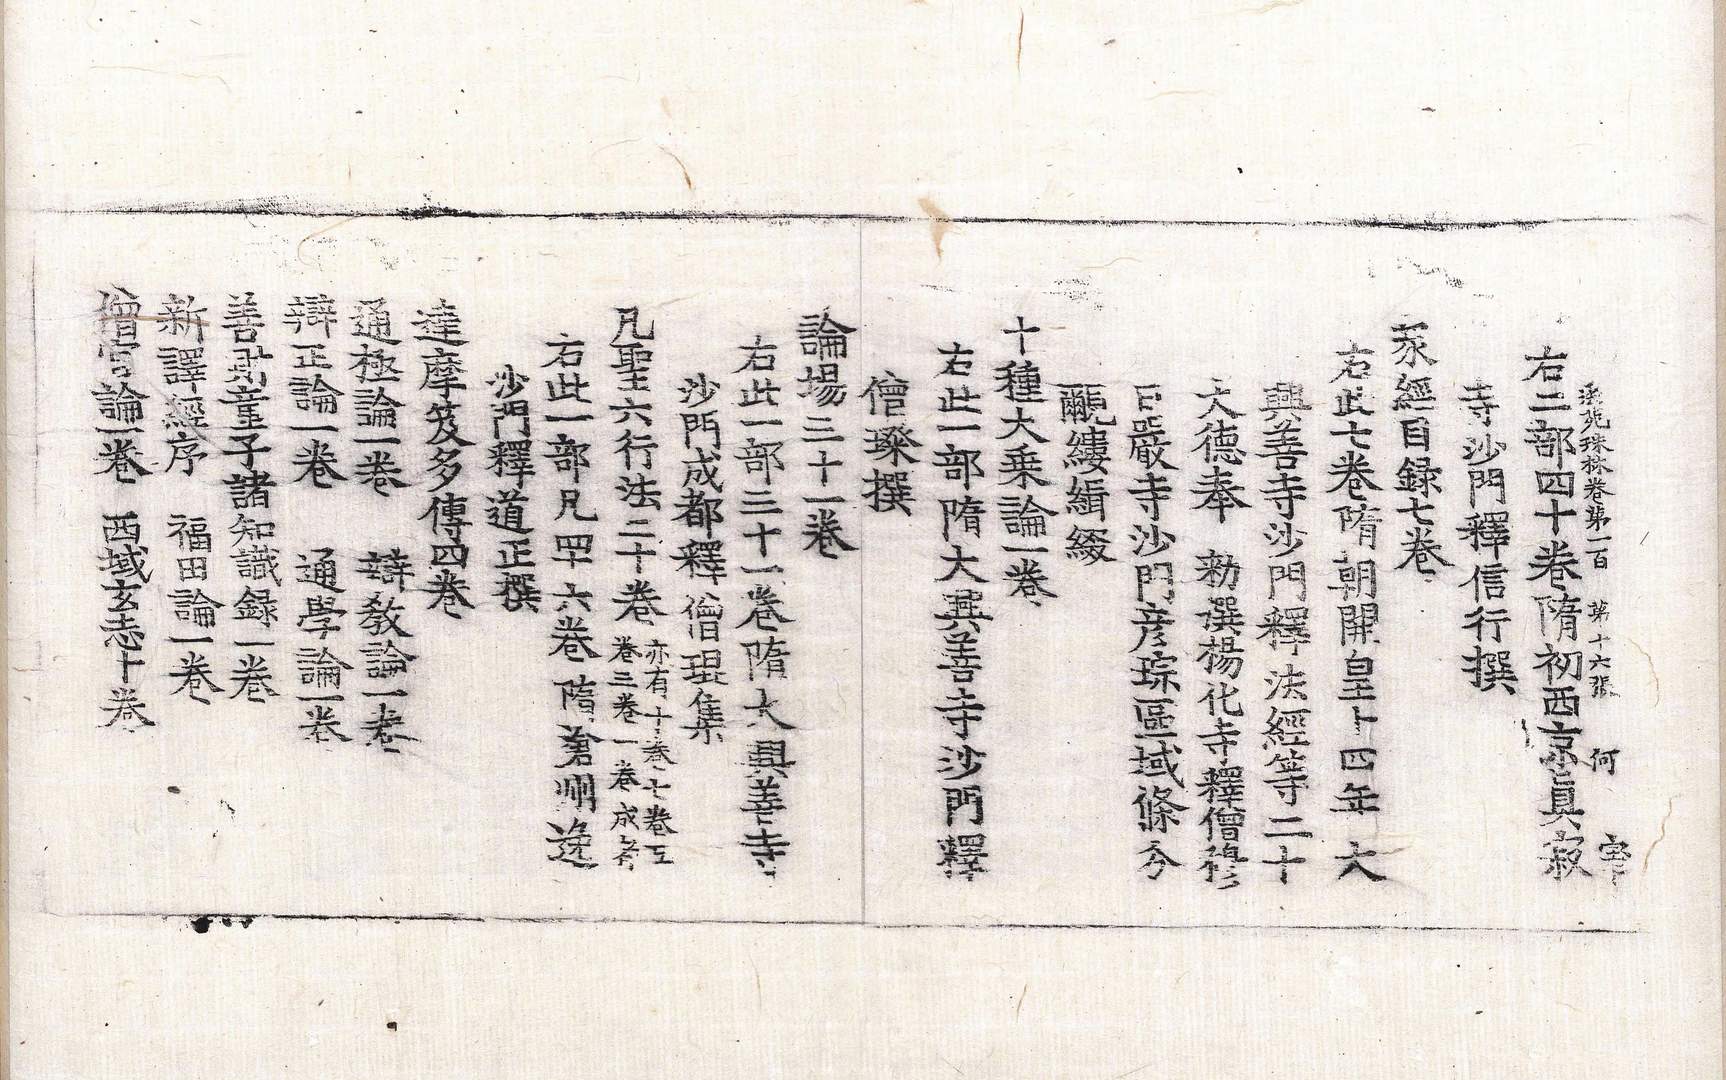 法苑珠林卷第一百 第十六張 何
右二部四十卷隋初西京真寂
寺沙門釋信行撰
衆經目録七卷
右此七卷隋朝開皇十四年大
興善寺沙門釋法經等二十
大德奉 勑撰楊化寺釋僧穆
日嚴寺沙門彦琮區域條分
覼縷緝綴
十種大乘論一卷
右此一部隋大興善寺沙門釋
僧璨撰
論場三十一卷
右此一部三十一卷隋大興善寺
沙門成都釋僧琨集
凡聖六行法二十卷 亦有十卷七卷五
卷三卷一卷成者
右此一部凡四十六卷隋滄州逸
沙門釋道正撰
達摩笈多傳四卷
通極論一卷 辯教論一卷
辯正論一卷 通學論一卷
善財童子諸知識録一卷
新譯經序 福田論一卷
僧官論一卷 西域玄志十卷